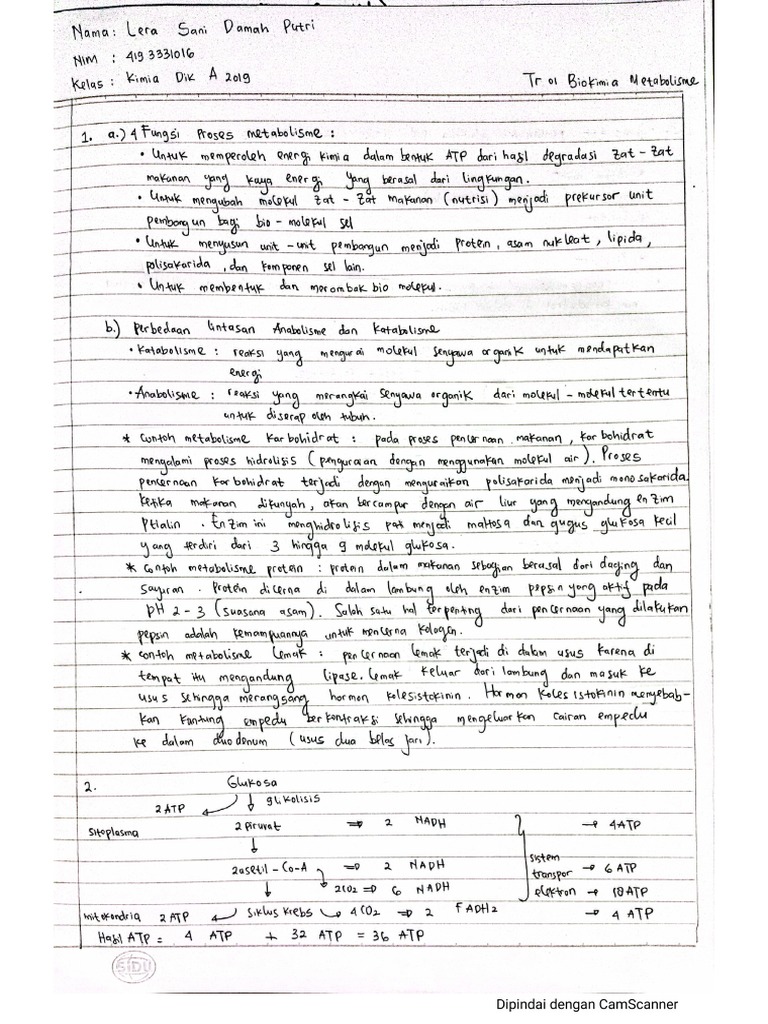 Nama: Lera Sani Damah Putri
NIM : 4193331016
Kelas : Kimia Dik A 2019
TR 01 Biokimia Metabolisme
1. a.) 4 Fungsi Proses metabolisme :
• Untuk memperoleh energi kimia dalam bentuk ATP dari hasil degradasi zat-zat
makanan yang kaya energi yang berasal dari lingkungan.
• Untuk mengubah molekul zat-zat makanan (nutrisi) menjadi prekursor unit
pembangun bagi bio-molekul sel
• Untuk menyusun unit-unit pembangun menjadi protein, asam nukleat, lipida,
polisakarida, dan komponen sel lain.
• Untuk membentuk dan merombak bio molekul.
b.) Perbedaan lintasan Anabolisme dan Katabolisme
• Katabolisme : reaksi yang mengurai molekul senyawa organik untuk mendapatkan
energi
• Anabolisme : reaksi yang merangkai senyawa organik dari molekul-molekul tertentu
untuk diserap oleh tubuh.
* Contoh metabolisme karbohidrat : pada proses pencernaan makanan, karbohidrat
mengalami proses hidrolisis (penguraian dengan menggunakan molekul air). Proses
pencernaan karbohidrat terjadi dengan menguraikan polisakarida menjadi monosakarida.
Ketika makanan dikunyah, akan bercampur dengan air liur yang mengandung enzim
Ptialin. Enzim ini menghidrolisis pati menjadi maltosa dan gugus glukosa kecil
yang terdiri dari 3 hingga 9 molekul glukosa.
* Contoh metabolisme protein : protein dalam makanan sebagian berasal dari daging dan
sayuran. Protein dicerna di dalam lambung oleh enzim pepsin yang aktif pada
pH 2-3 (suasana asam). Salah satu hal terpenting dari pencernaan yang dilakukan
pepsin adalah kemampuannya untuk mencerna kolagen.
* contoh metabolisme Lemak : pencernaan lemak terjadi di dalam usus karena di
tempat itu mengandung lipase. Lemak keluar dari lambung dan masuk ke
usus sehingga merangsang hormon kolesistokinin. Hormon kolesistokinin menyebab-
kan kantung empedu berkontraksi sehingga mengeluarkan cairan empedu
ke dalam duodenum (usus dua belas jari).
2. Glukosa
2 ATP ↙ ↓ glikolisis
Sitoplasma 2 Piruvat ⇒ 2 NADH → 4 ATP
↓
2 asetil-Co-A ⇒ 2 NADH sistem transpor elektron → 6 ATP
↓ 2CO2 ⇒ 6 NADH → 18 ATP
mitokondria 2 ATP ← Siklus Krebs → 4 CO2 ⇒ 2 FADH2 → 4 ATP
Hasil ATP = 4 ATP + 32 ATP = 36 ATP
SIDU
Dipindai dengan CamScanner